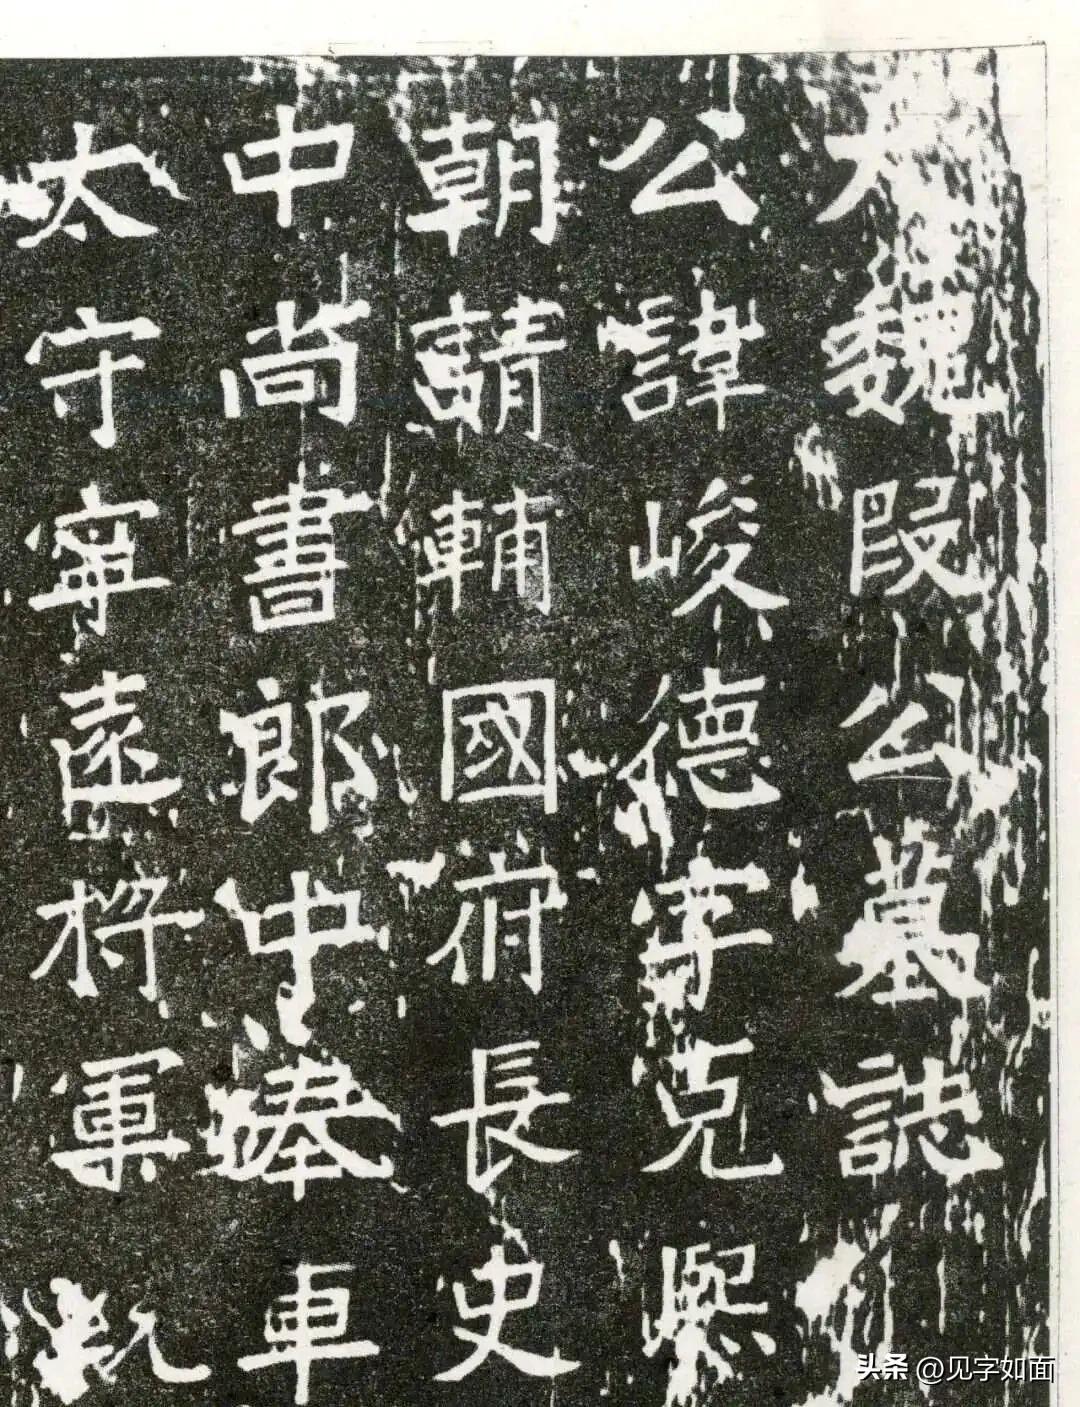 大魏段公墓誌
公諱峻德字克熙
朝請輔國府長史
中尚書郎中奉車
太守寧遠將軍
头条 @见字如面